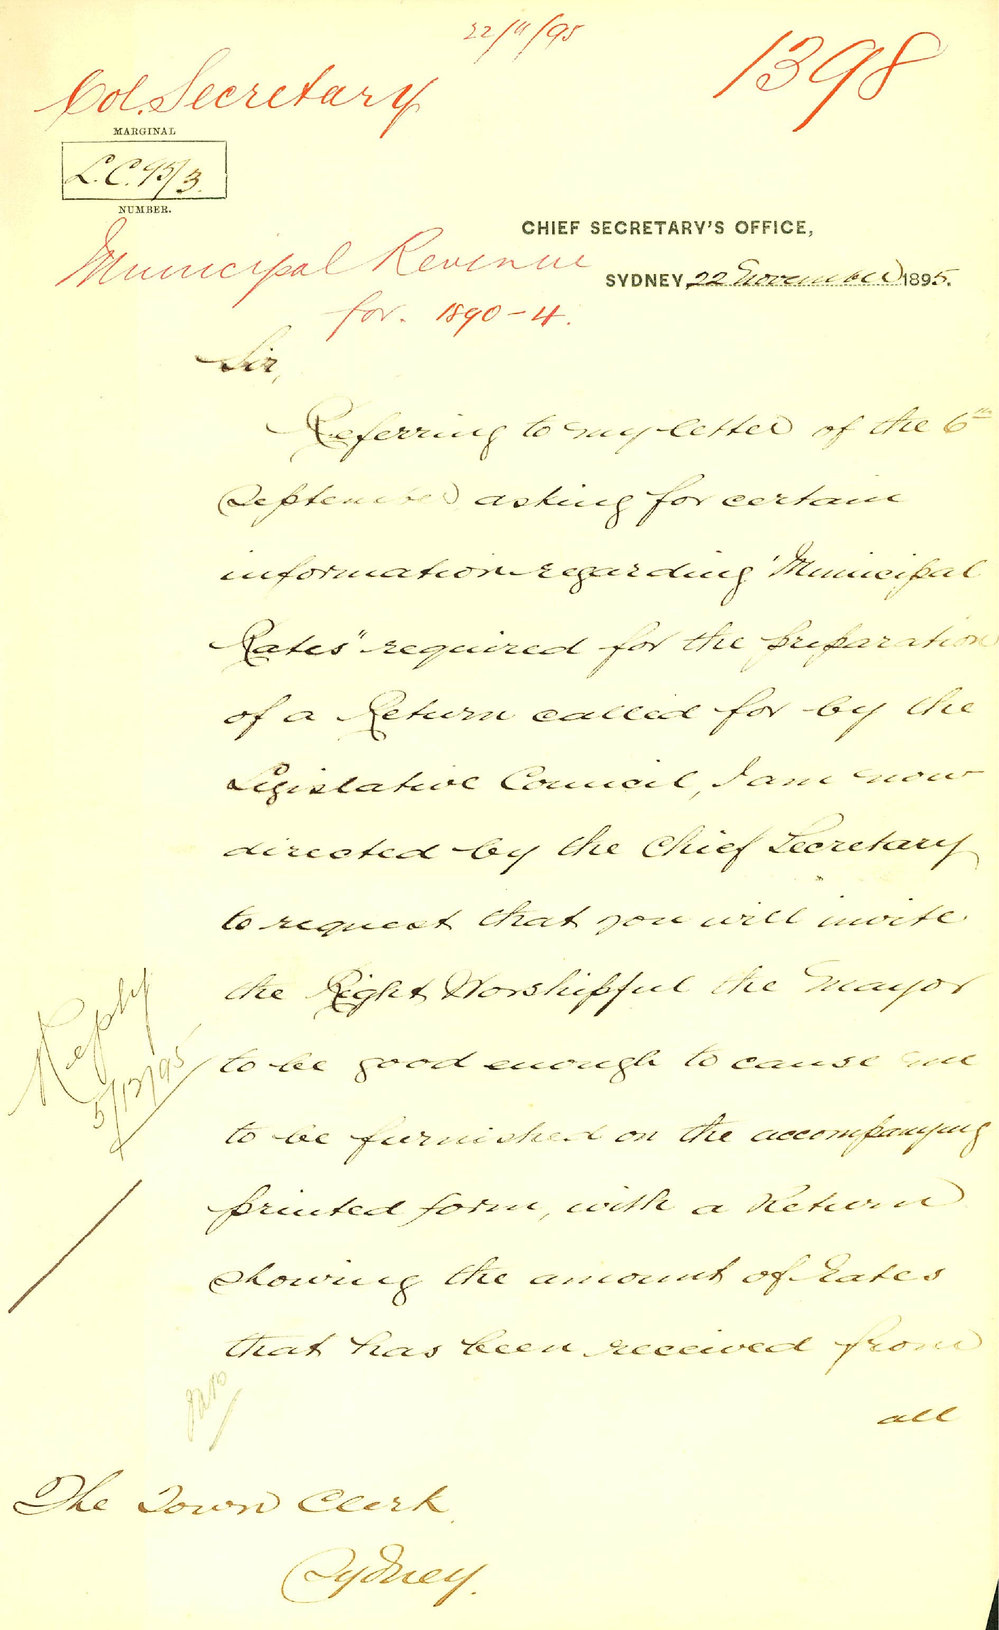 22/11/95
1398
Col. Secretary
MARGINAL
L.C. 95/3.
NUMBER.
CHIEF SECRETARY'S OFFICE,
Municipal Revenue
SYDNEY, 22 November 1895.
for. 1890-4.
Sir,
Referring to my letter of the 6th
September asking for certain
information regarding "Municipal
Rates" required for the preparation
of a Return called for by the
Legislative Council, I am now
directed by the Chief Secretary
to request that you will invite
the Right Worshipful the Mayor
to be good enough to cause me
to be furnished on the accompanying
printed form, with a Return
showing the amount of Rates
that has been received from
all
Reply
5/12/95
The Town Clerk
Sydney.